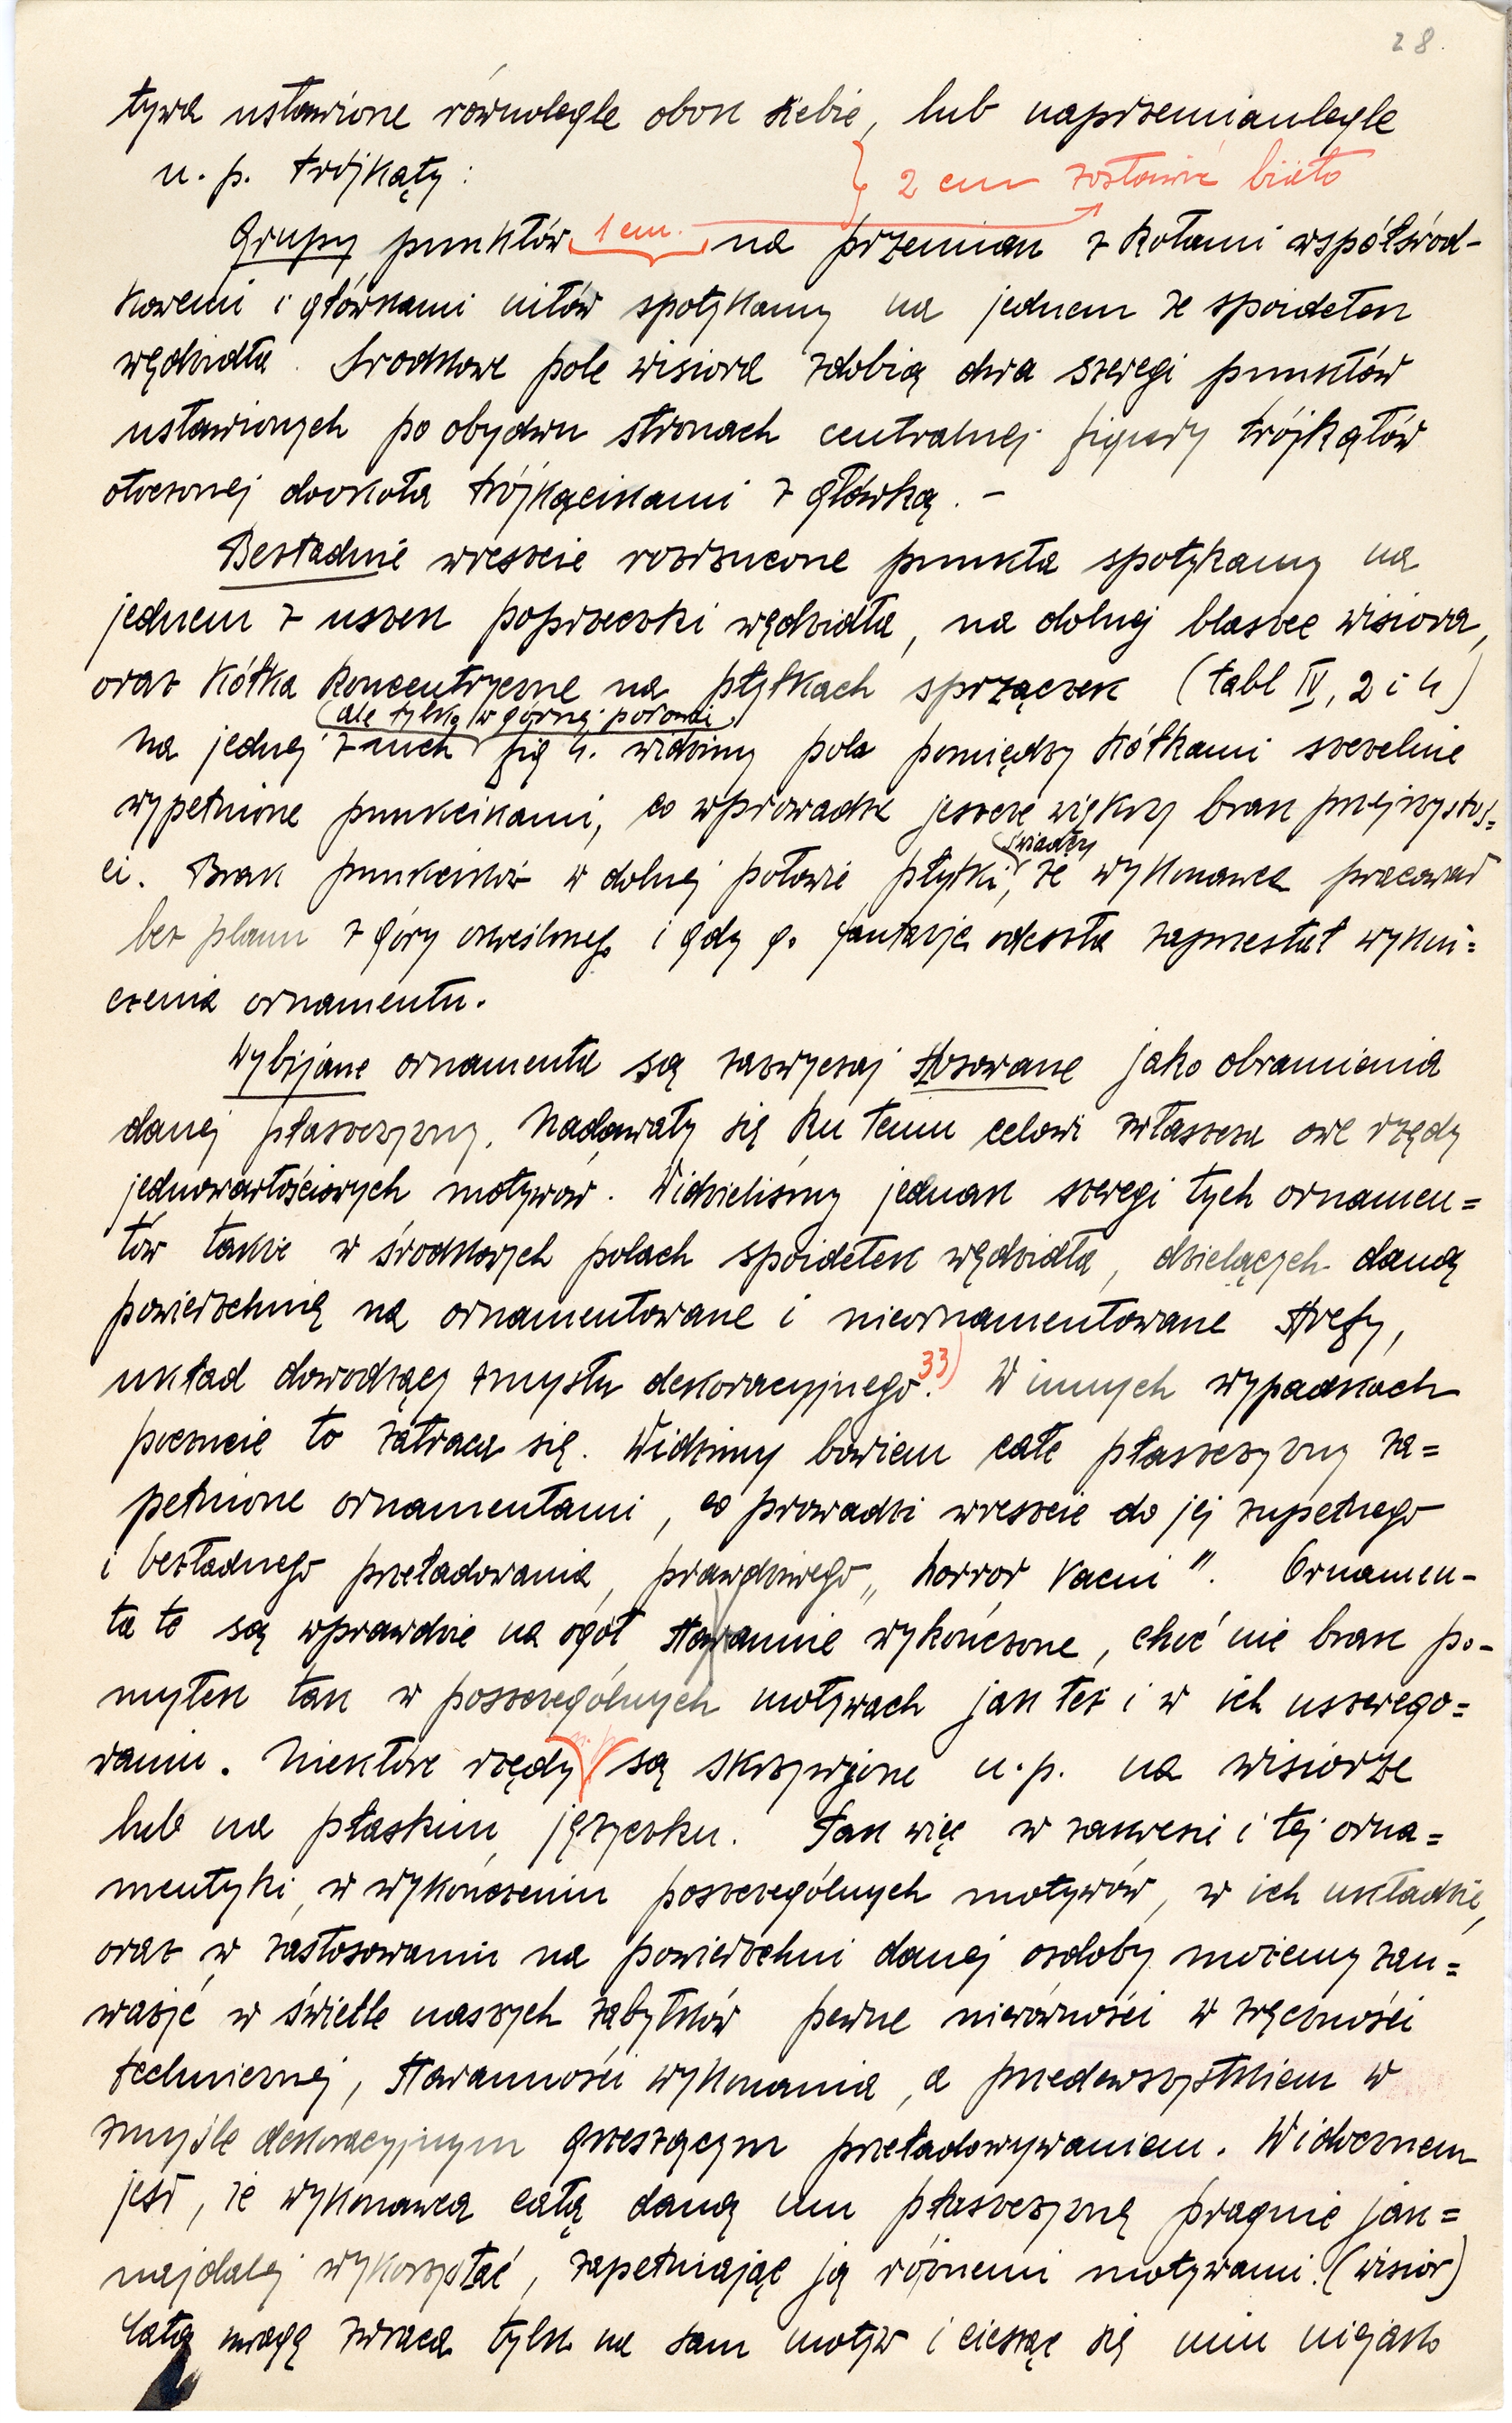 28.
tywa ustawione równolegle obok siebie, lub naprzemianlegle
n. p. trójkąty :
2 cm zostawić biało
1 cm.
Grupy punktów na przemian z kołami współśrod-
kowemi i główkami nitów spotykamy na jednem ze spoidełek
wędzidła. Środkowe pole wisiora zdobią dwa szeregi punktów
ustawionych po obydwu stronach centralnej figury trójkątów
otoczonej dookoła trójkącikami z główką. –
Bezładnie wreszcie rozrzucone punkta spotykamy na
jednem z uszek poprzeczki wędzidła, na dolnej blaszce wisiora,
oraz kółka koncentryczne na płytkach sprzączek (tabl IV, 2 i 4)
(ale tylko w górnej połowie)
Na jednej z nich fig 4. widzimy pola pomiędzy kółkami szczelnie
wypełnione punkcikami, co wprowadza jeszcze większy brak przejrzystoś=
ci. Brak punkcików w dolnej połowie płytki, świadczy że wykonawca pracował
bez planu z góry określonego i gdy go fantazja odeszła zaprzestał wykoń=
czenia ornamentu.
Wybijane ornamenta są zazwyczaj stosowane jako obramienia
danej płaszczyzny. Nadawały się ku temu celowi zwłaszcza owe rzędy
jednowartościowych motywów. Widzieliśmy jednak szeregi tych ornamen=
tów także w środkowych polach spoidełek wędzidła, dzielących daną
powierzchnię na ornamentowane i nieornamentowane strefy,
układ dowodzący zmysłu dekoracyjnego.33) W innych wypadkach
poczucie to zatraca się. Widzimy bowiem całe płaszczyzny za=
pełnione ornamentami, co prowadzi wreszcie do jej zupełnego
i bezładnego przeładowania, prawdziwego „horror vacui". Ornamen-
ta te są wprawdzie na ogół starannie wykończone, choć nie brak po-
myłek tak w poszczególnych motywach jak też i w ich uszerego=
waniu. Niektóre rzędy są skrzywione n.p. na wisiorze
lub na płaskim języczku. Tak więc w zakresie i tej orna=
mentyki, w wykończeniu poszczególnych motywów, w ich układzie,
oraz w zastosowaniu na powierzchni danej ozdoby możemy zau=
ważyć w świetle naszych zabytków pewne nierówności w zręczności
technicznej, staranności wykonania, a przedewszystkiem w
zmyśle dekoracyjnym grzeszącym przeładowywaniem. Widocznem
jest, że wykonawca całą daną mu płaszczyznę pragnie jak=
najdalej wykorzystać, zapełniając ją różnemi motywami. (wisior)
Całą uwagę zwraca tylko na sam motyw i ciesząc się nim niejako